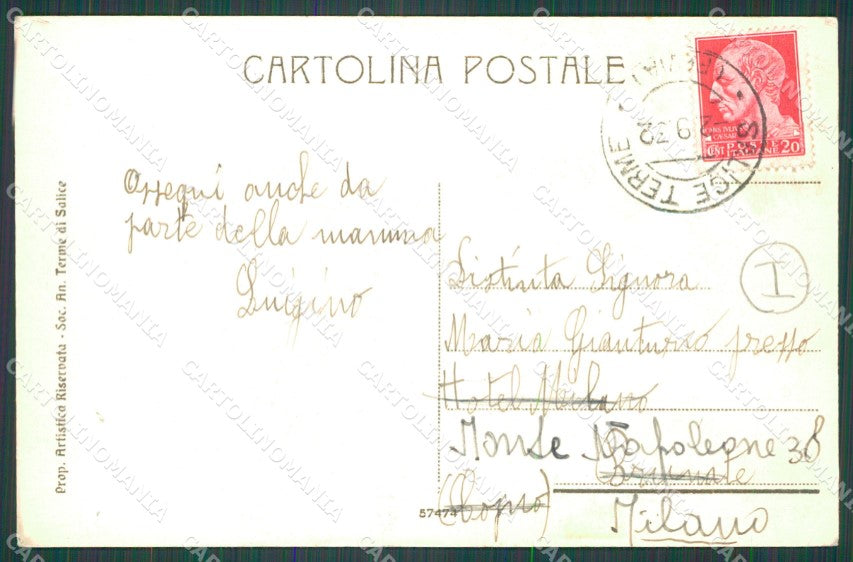 CARTOLINA POSTALE
SALICE TERME
2 9 32
CENT 20
Ossequi anche da
parte della mamma
Luigino
Distinta Signora
Maria Gianturco presso
Hotel Milano
Monte Napoleone 38
Brunate
(Como)
Milano
I
57474
Prop. Artistica Riservata - Soc. An. Terme di Salice
CARTOLINOMANIA